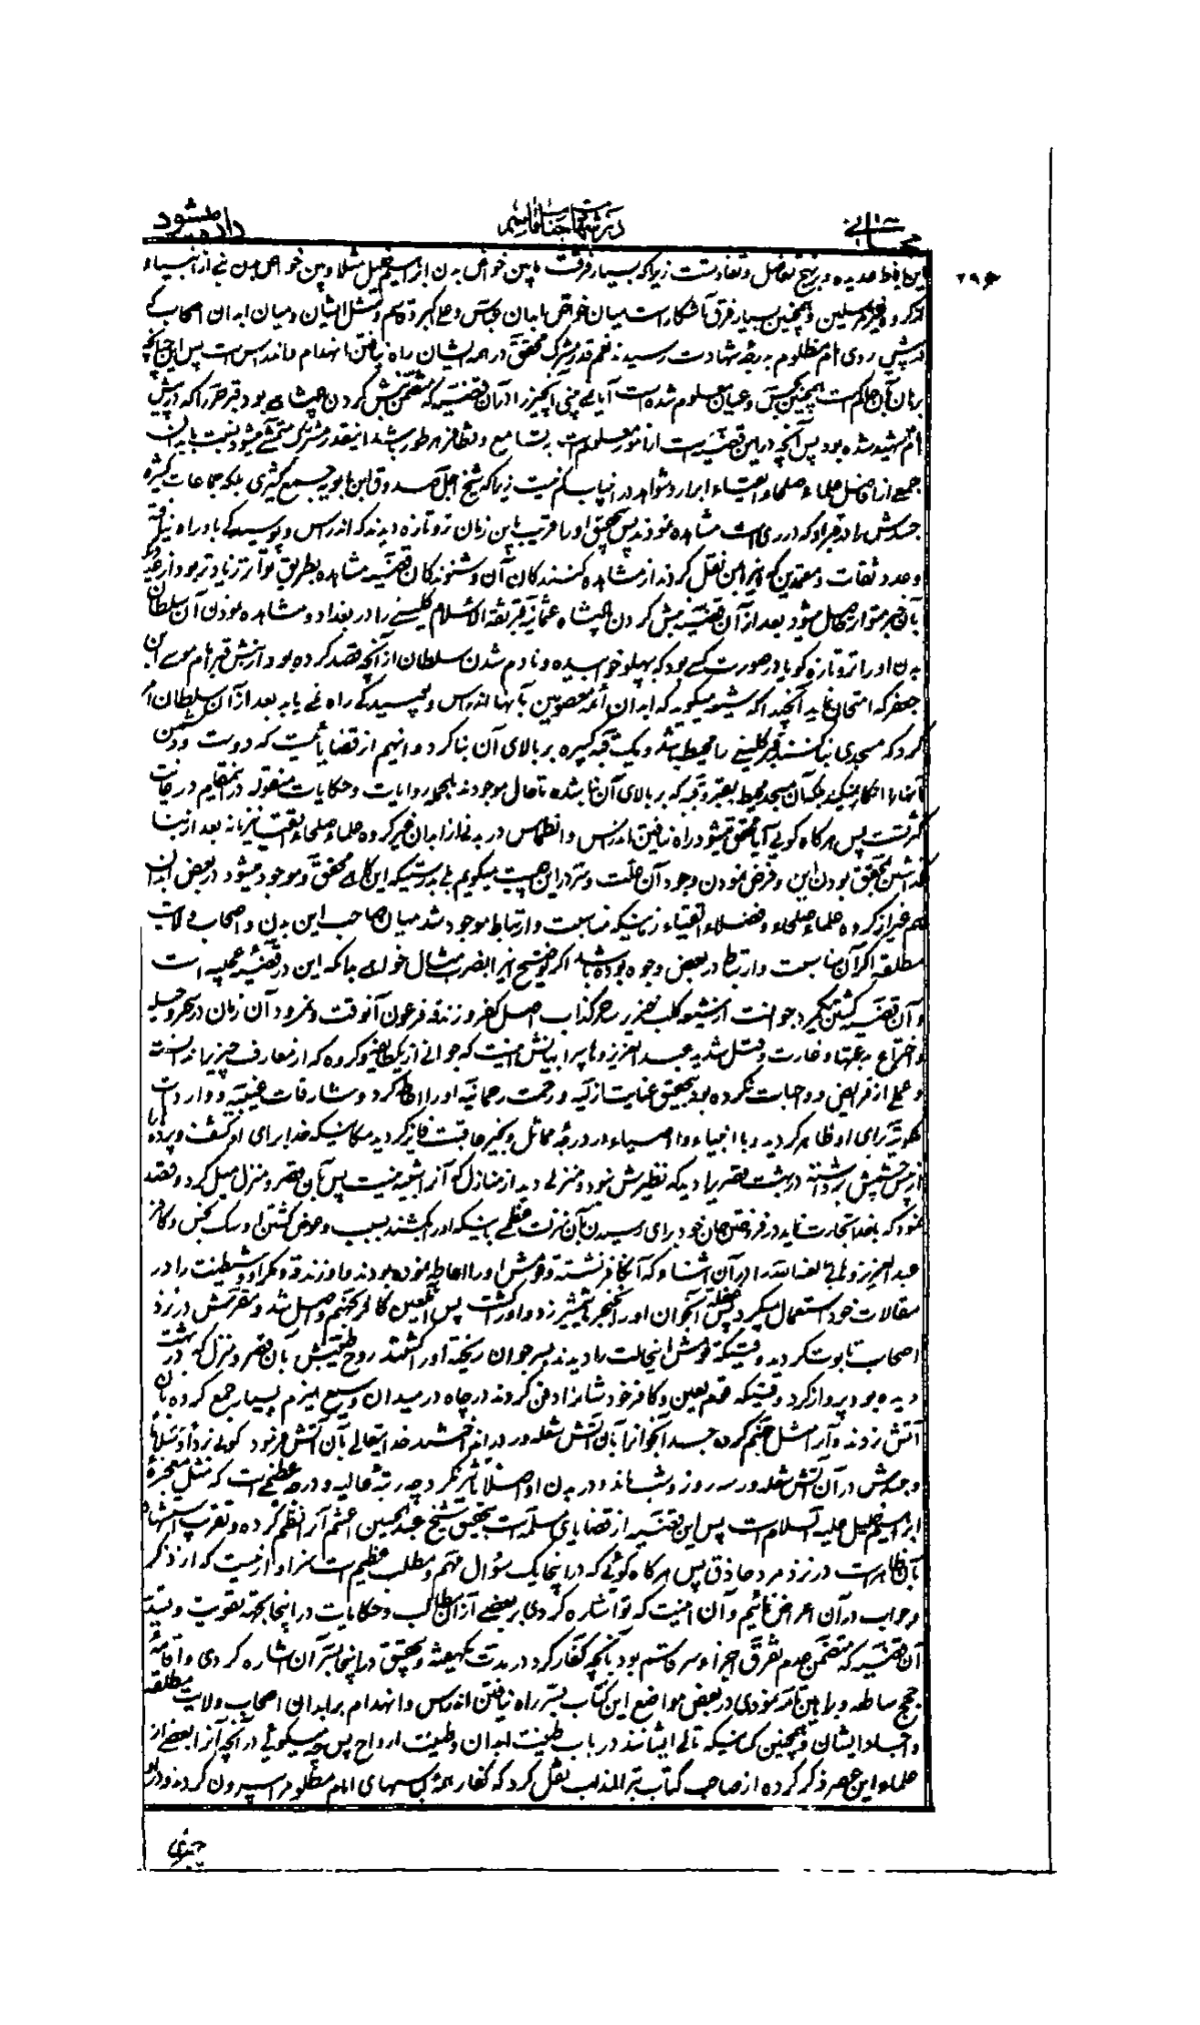 در شهادت جناب قاسم
۲۹۶
زیرا که بسیار فرقست مابین خواص بدن ابراهیم خلیل مثلا و بین خواص بدن نبی از انبیاء
و همچنین بسیار فرق آشکار است میان خواص ابدان عباس و علی اکبر و قاسم و مثل ایشان و میان ابدان اصحاب که
در پیش روی امام مظلوم بدرجه شهادت رسیدند نعم قدر مشترک محقق در همه ایشان راه نیافتن انهدام و اندراس است پس این چنانکه
همچنین بحس و عیان معلوم شده است آیا نمی بینی آنچیز را در آن قضیه که متضمن نبش کردن بود قبر حر را که در پیش
امام شهید شده بود پس آنچه در این قضیه است از امور معلومه است
جمعی از افاضل علماء و صلحاء و اتقیاء و ابرار و شواهد در اینباب کم نیست زیرا که شیخ اجل صدوق ابن بابویه جمع کثیری بلکه جماعات کثیره
جسدش را در قبر او که در ری است مشاهده نمودند پس بتحقیق او را قریب باین زمان تر و تازه دیدند که اندراس و پوسیدگی باو راه نیافته
و عدد ثقات و معتمدین که اینرا بمن نقل کردند از مشاهده کنندگان آن و شنوندگان قضیه مشاهده بطریق تواتر زیادتر بود از
بآن خبر متواتر حاصل میشود بعد از آن قضیه نبش کردن پادشاه عثمانیه قبر ثقة الاسلام کلینی را در بغداد و مشاهده نمودن آن سلطان
بدن او را تر و تازه گویا در صورت کسی بود که بپهلو خوابیده و نادم شدن سلطان از آنچه قصد کرده بود از نبش قبر امام موسی ابن
جعفر که امتحان نماید آنچیز را که شیعه میگوید که ابدان ائمه معصومین بآنها اندراس و پوسیدگی راه نمی یابد بعد از آن سلطان امر
کرد که مسجدی بنا کنند قبر کلینی را محیط باشد و یک قبه کبیره بر بالای آن بنا کرد و اینهم از قضایائیست که دوست و دشمن
آنها را انکار نمیکنند بلکه آن مسجد محیط بقبر و قبه که بر بالای آن بنا شده تا حال موجودند بالجمله روایات و حکایات منقوله در این مقام در غایت
کثرتست پس هرگاه گوئی آیا محقق میشود راه نیافتن اندراس و انطماس در بدنها از ابدان غیر گروه علماء و صلحاء و اتقیاء یا نه بعد از بنا
گذاشتن بتحقق بودن این و فرض نمودن وجود آن علت و سر در این چیست میگویم بلی بدرستیکه این گاهی محقق و موجود میشود در بعض ابدان
هم غیر از گروه علماء و صلحاء و فضلاء و اتقیاء زمانیکه مناسبت و ارتباط موجود شد میان صاحب این بدن و اصحاب ولایت
مطلقه اگر آن مناسبت و ارتباط در بعض وجوه بوده باشد اگر توضیح اینرا بضرب مثال خواهی بدانکه این در قضیه عجیبه است
و آن قضیه کشتن یکمرد جوانست از شیعه کلب خنزیر ساحر کذاب اصل کفر و زندقه فرعون آنوقت و نمرود آن زمان در سحر و حیله
و اختراع بدعتها و غارت و قتل شدید عبد العزیز وهابی را بیانش اینست که جوانی از یک گروه که از معارف چیزی ندانسته
و عملی از فرایض و واجبات نکرده بود بتحقیق عنایت ازلیه و رحمت رحمانیه او را احاطه کرد و مشارقات غیبیه و واردات
ملکوتیه برای او ظاهر کردید و با انبیاء و اوصیاء در درجه مماثل و بخیر عاقبت فایز گردید مکانیکه خدا برای او کشف و پرده را
از پیش چشمش برداشته در بهشت قصری را دید که نظیرش نبود و منزلی دید از منازل که آنرا شبیه نیست پس بآن قصر و منزل میل کرد و قصد
نمود که با خدا تجارت نماید در فروختن جان خود برای رسیدن بآن منزلت عظمی باینکه او را بکشند بسبب و عوض کشتن او سگ نجس و کافر
عبد العزیز وهابی لعنه الله را در آن اثنا که آن کافر نشسته و قومش او را احاطه نموده بودند و او زندقه و مکر و شیطنت را در
مقالات خود استعمال میکرد پس آنجوان او را بخنجر یا شمشیر زد و او را کشت پس آن لعین کافر بجهنم واصل شد و مقرش در نزد
اصحاب تابوت کردید وقتیکه قومش اینحالت را دیدند بسر جوان ریخته او را کشتند روح طیبش بآن قصر و منزل که در بهشت
دیده بود پرواز کرد وقتیکه قوم لعین و کافر خودشانرا دفن کردند در چاه در میدان وسیع هیزم بسیار جمع کرده بآن
آتش زدند و آنرا مثل جهنم کرده جسد آنجوانرا بآن آتش شعله ور در انداختند خدایتعالی بآن آتش فرمود کونی بردا و سلاما
و جسدش در آن آتش شعله ور سه روز و شب ماند و در بدن او اصلا تاثیر نکرد چه رتبه عالیه و درجه عظمی است که مثل معجزه
ابراهیم خلیل علیه السلام است پس این قضیه از قضایای مسلمه است بتحقیق شیخ عبد الحسین اعثم آنرا نظم کرده و تقریب استشهاد
بآن ظاهر است در نزد مرد حاذق پس هرگاه گوئی که در اینجا یک سؤال مهم و مطلب عظیم است سزاوار نیست که از ذکر
و جواب در آن اعراض نمائیم و آن اینست که تو اشاره کردی ببعضی از آن مطالب و حکایات در اینجا بجهة تقویت و تسدید
آن قضیه که متضمن عدم تفرق اجزاء و سر قاسم بود بآنچه کفار کرد در مدت یکهفته و بتحقیق در اینجا بسر آن اشاره کردی و اقامه
حجج ساطعه و براهین تامه نمودی در بعض مواضع این کتاب بسر راه نیافتن اندراس و انهدام بر ابدان اصحاب ولایت مطلقه
و اجساد ایشان و همچنین کسانیکه تالی ایشانند در باب طینت ابدان و طینت ارواح پس چه میگوئی در آنچه آنرا بعضی از
علماء این عصر ذکر کرده از صاحب کتاب بحر المذاهب نقل کرد که کفار همه لباسهای امام مظلوم را بیرون کردند و در او
چیزی